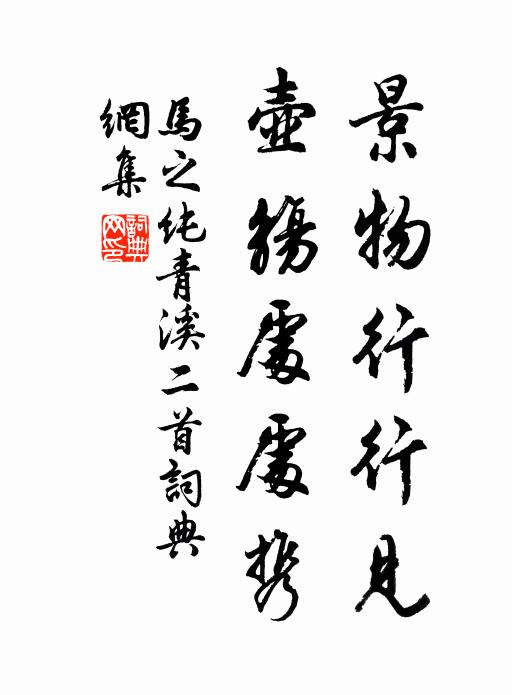 景物行行見
壺觴處處携
馬之純青溪二首詞典
網集
詞典網印